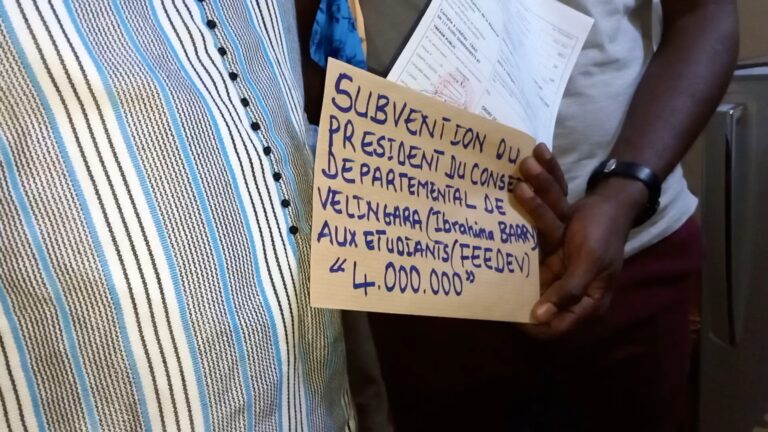 SUBVENTION DU
PRESIDENT DU CONSEI
DEPARTEMENTAL DE
VELINGARA (Ibrahima BARRY)
AUX ETUDIANTS (FEEDEV)
"4.000.000"